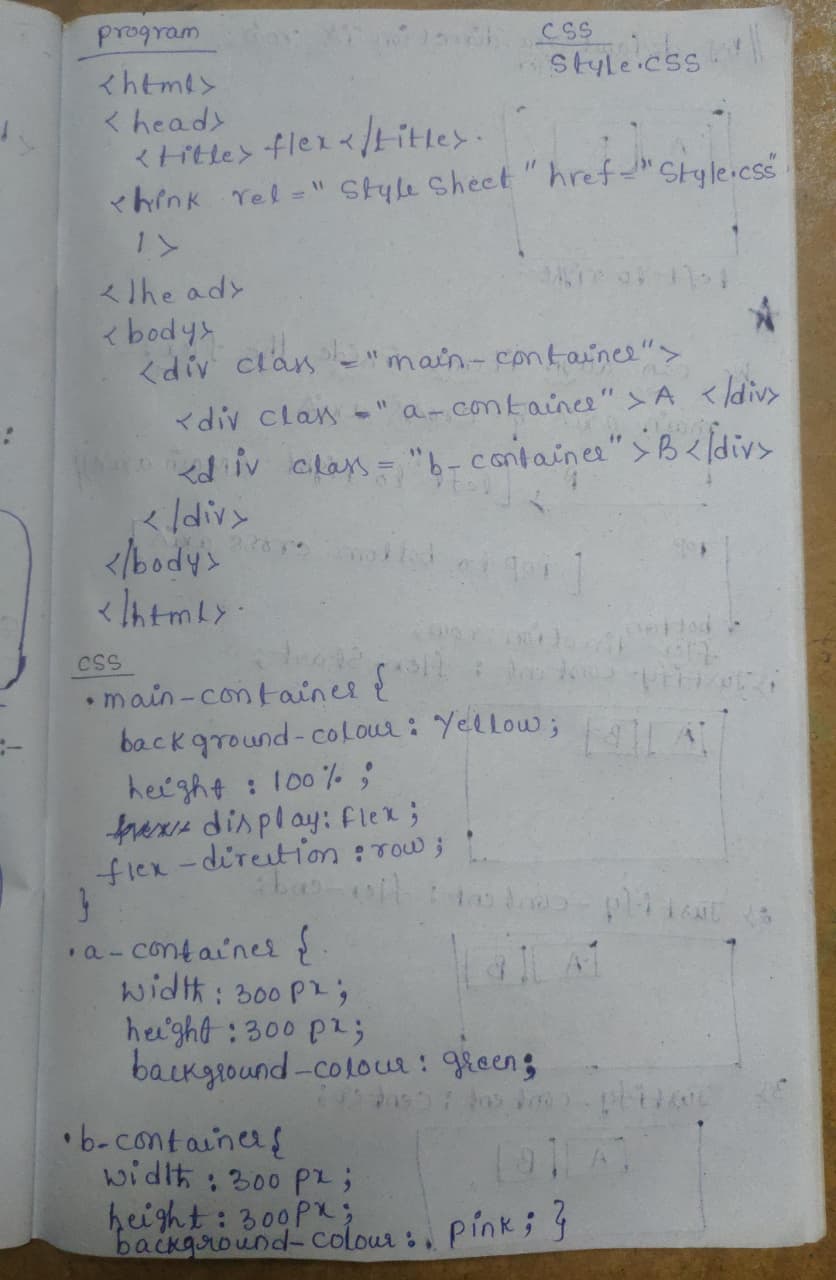 program
CSS
Style.css
<html>
<head>
<title> flex </title>.
<link rel = "Style Sheet" href = "Style.css"
/>
</head>
<body>
<div class = "main-container">
<div class = "a-container" > A </div>
<div class = "b-container" > B </div>
</div>
</body>
</html>.
CSS
.main-container {
background-colour : Yellow;
height : 100% ;
display: flex;
flex-direction : row;
}
.a-container {
width : 300 px;
height : 300 px;
background-colour : green;
.b-container {
width : 300 px;
height : 300px;
background-colour : . pink; }